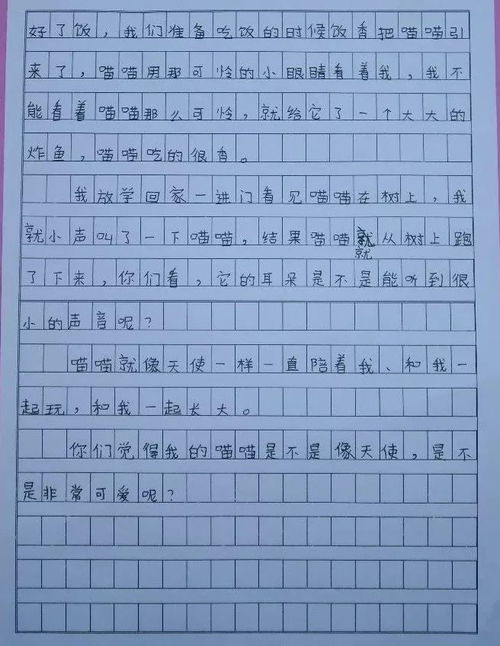 好了饭，我们准备吃饭的时候饭香把喵喵引
来了，喵喵用那可怜的小眼睛看着我，我不
能看着喵喵那么可怜，就给它了一个大大的
炸鱼，喵喵吃的很香。
我放学回家一进门看见喵喵在树上，我
就小声叫了一下喵喵，结果喵喵就从树上跑
就
了下来，你们看，它的耳朵是不是能听到很
小的声音呢？
喵喵就像天使一样一直陪着我、和我一
起玩，和我一起长大。
你们觉得我的喵喵是不是像天使，是不
是非常可爱呢？